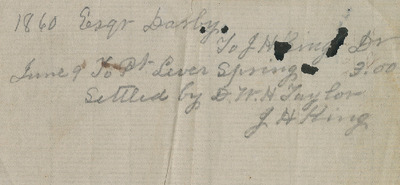 1860 Esqr Darby.
To J H King Dr
June 9 To Pt Lever Spring 3.00
Settled by D. W. H Taylor
J H King